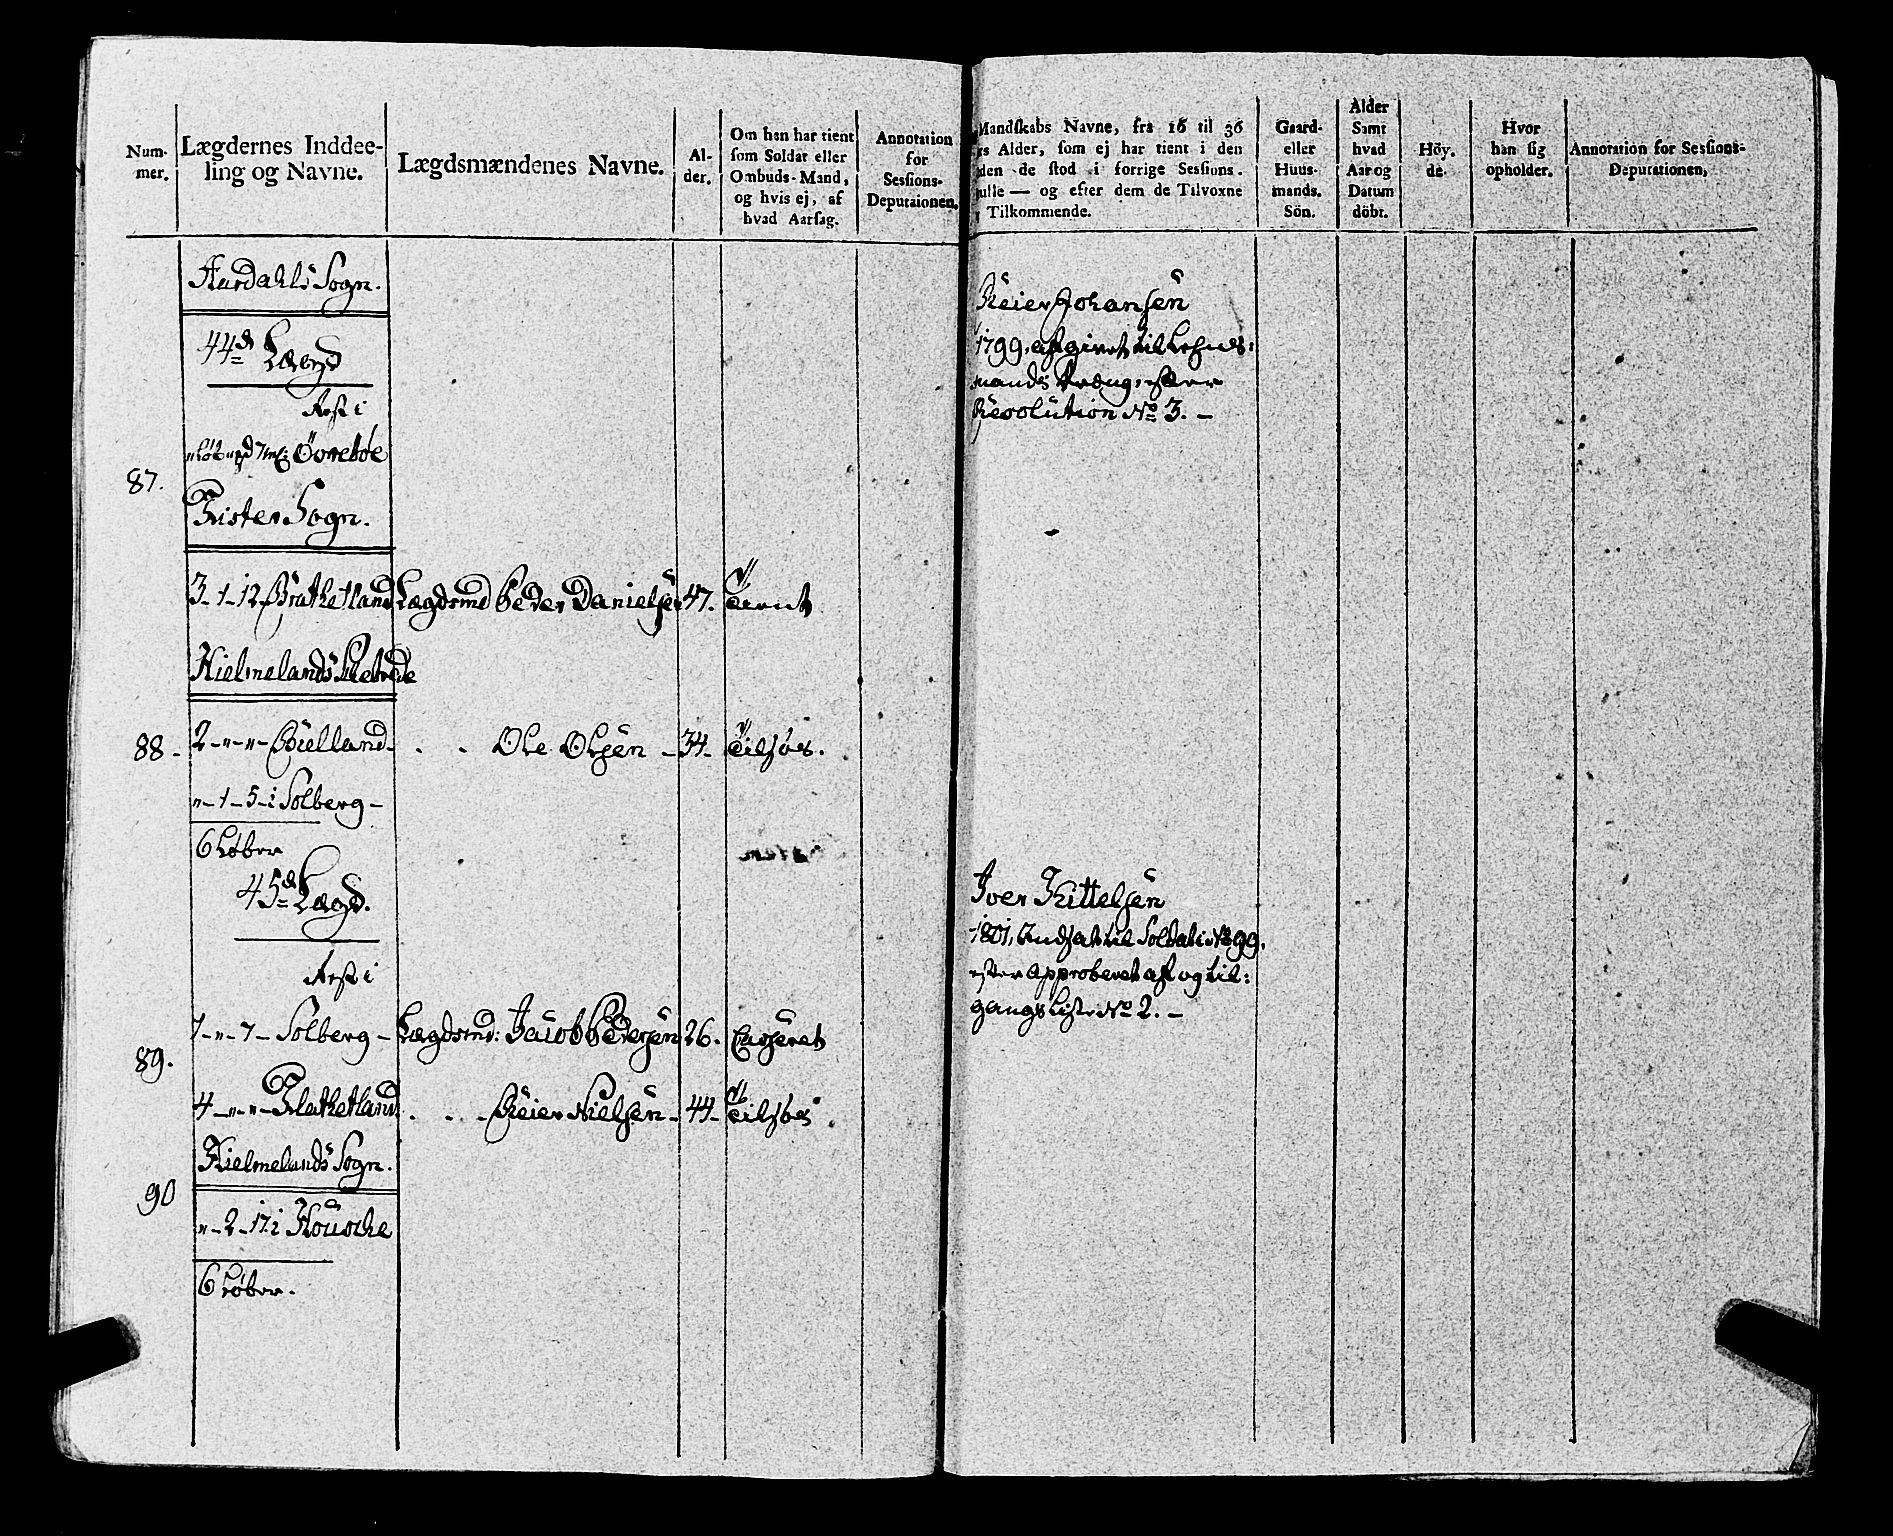 Num-
mer.
Lægdernes Inddee-
ling og Navne.
Lægdsmændenes Navne.
Al-
der.
Om han har tient
som Soldat eller
Ombuds-Mand,
og hvis ej, af
hvad Aarsag.
Annotation
for
Sessions-
Deputaionen.
Aardahls Sogn.
44de Lægd
Rest i
Övrebøe
87.
Fister Sogn.
3-1-12 Brathetland Lægdsmd Peder Danielsen 47. Tient
Hielmelands
88- 2-"-"- Bielland - . . Ole Olsen - 34- Tilsøes.
"-1-5-i Solberg-
6 Løber
45de Lægd.
Rest i
1-"-7- Solberg- Lægdsmd: Jacob Pedersen 26. Casseret
89.
4-"-"- Flathetland . . . Reier Nielsen- 44- Tilsøes
Hielmelands Sogn.
90
"-2-17. i Housche
6 Løber.
Mandskabs Navne, fra 16 til 36
rs Alder, som ej har tient i den
den de stod i forrige Sessions.
ulle — og efter dem de Tilvoxne
Tilkommende.
Gaard-
eller
Huus-
mands.
Sön.
Alder
Samt
hvad
Aar og
Datum
döbt.
Höy.
de.
Hvor
han sig
opholder.
Annotation for Sessions-
Deputationen,
Reier Johansen
1799, afgivet til Lehns:
mands Dreng, efter
Resolution No 3. -
Iver Kittelsen
1801, Indsat til Soldat i No 99.
efter Approberet af og til:
gangs Liste No 2. -